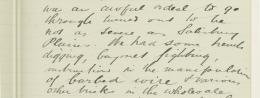 was an awful ordeal to go
through turned out to be
not as severe as Salisbury
Plains. We had some trench
digging, bayonet fighting,
instructions in the manipulation
of barbed wire & various
other tricks in the wholesale